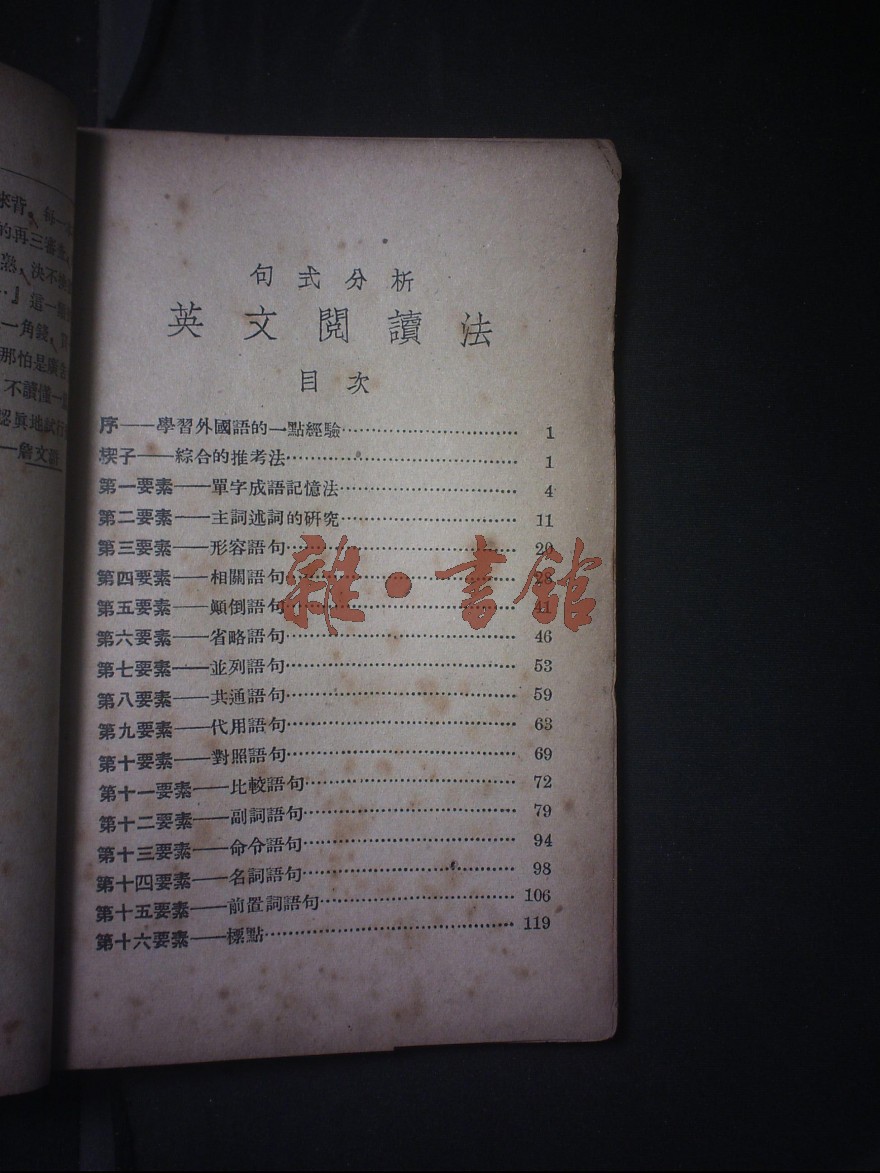 句式分析
英文閱讀法
目次
序——學習外國語的一點經驗 1
楔子——綜合的推考法 1
第一要素——單字成語記憶法 4
第二要素——主詞述詞的研究 11
第三要素——形容語句 20
第四要素——相關語句 28
第五要素——顚倒語句 41
第六要素——省略語句 46
第七要素——並列語句 53
第八要素——共通語句 59
第九要素——代用語句 63
第十要素——對照語句 69
第十一要素——比較語句 72
第十二要素——副詞語句 79
第十三要素——命令語句 94
第十四要素——名詞語句 98
第十五要素——前置詞語句 106
第十六要素——標點 119
雜·書館
來背、每一
的再三審查
熟、決不
…』這一
一角錢、
那怕是廣告
不讀懂一
認眞地試行
——詹文滸